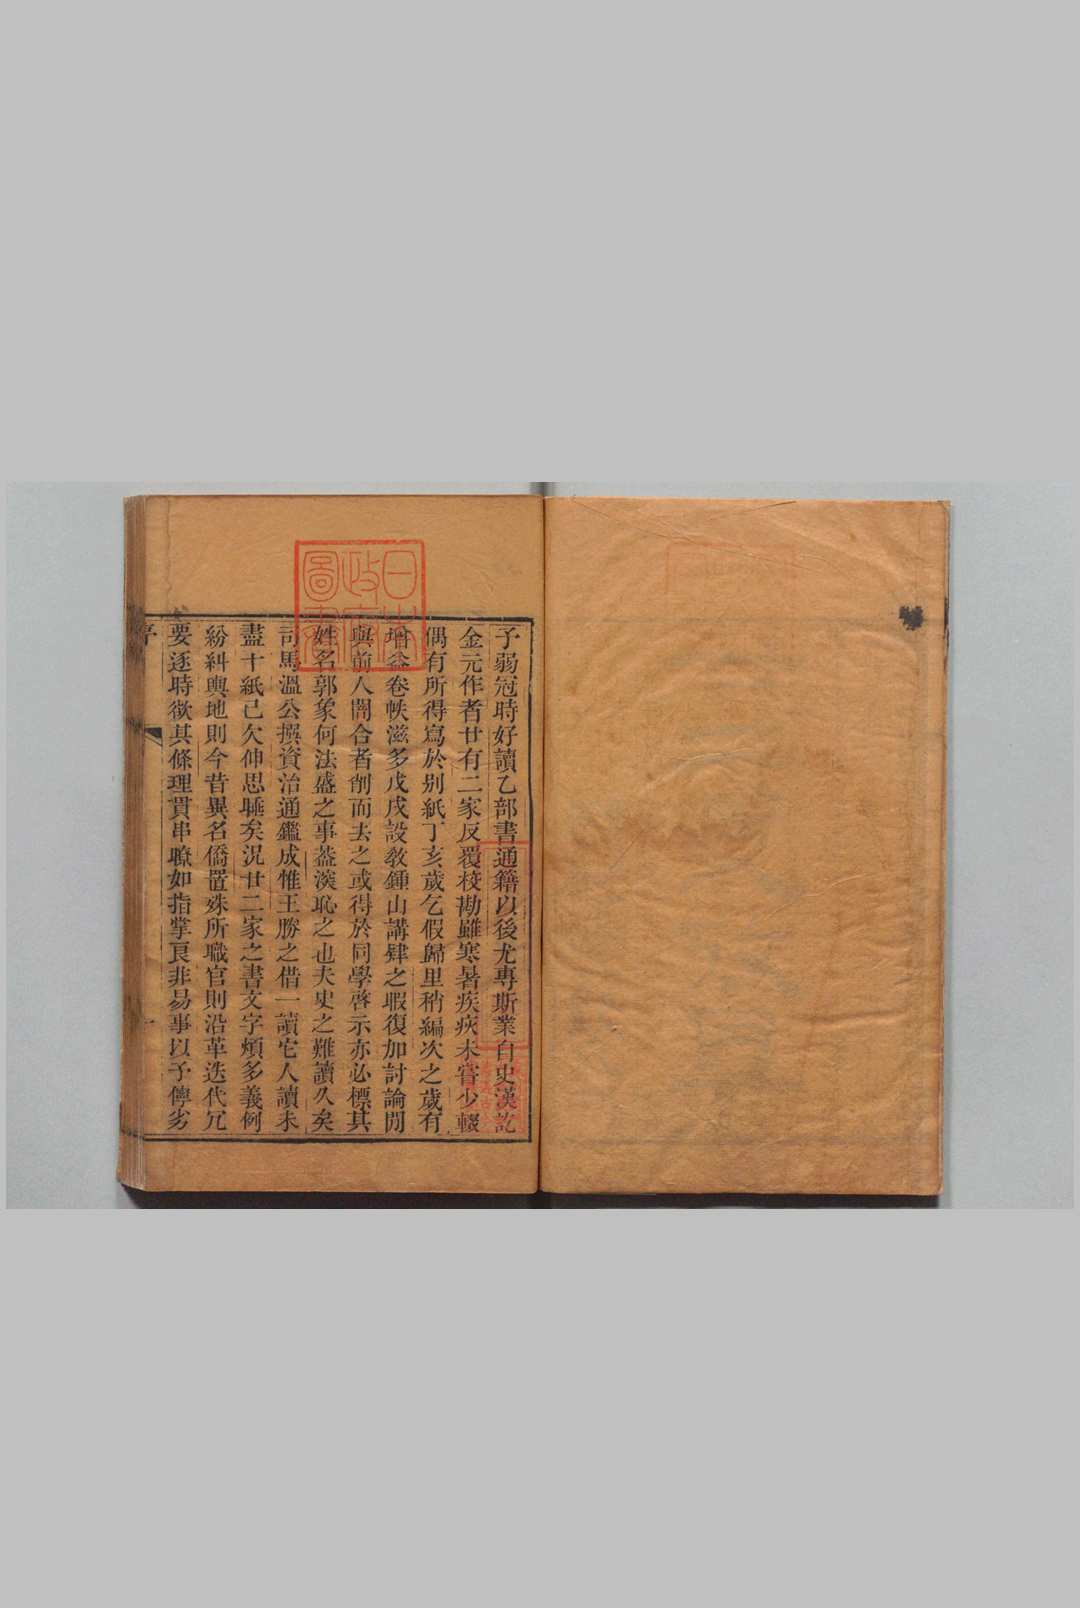 予弱冠時好讀乙部書通籍以後尤專斯業自史漢訖
金元作者廿有二家反覆校勘雖寒暑疾疢未嘗少輟
偶有所得寫於別紙丁亥歲乞假歸里稍編次之歲有
增益卷帙滋多戊戌設敎鍾山講肄之暇復加討論閒
與前人闇合者削而去之或得於同學啓示亦必標其
姓名郭象何法盛之事葢深恥之也夫史之難讀久矣
司馬溫公撰資治通鑑成惟王勝之借一讀它人讀未
盡十紙已欠伸思睡矣況廿二家之書文字煩多義例
紛糾輿地則今昔異名僑置殊所職官則沿革迭代冗
要逐時欲其條理貫串瞭如指掌良非易事以予儜劣
序
一
日本
政府
圖書